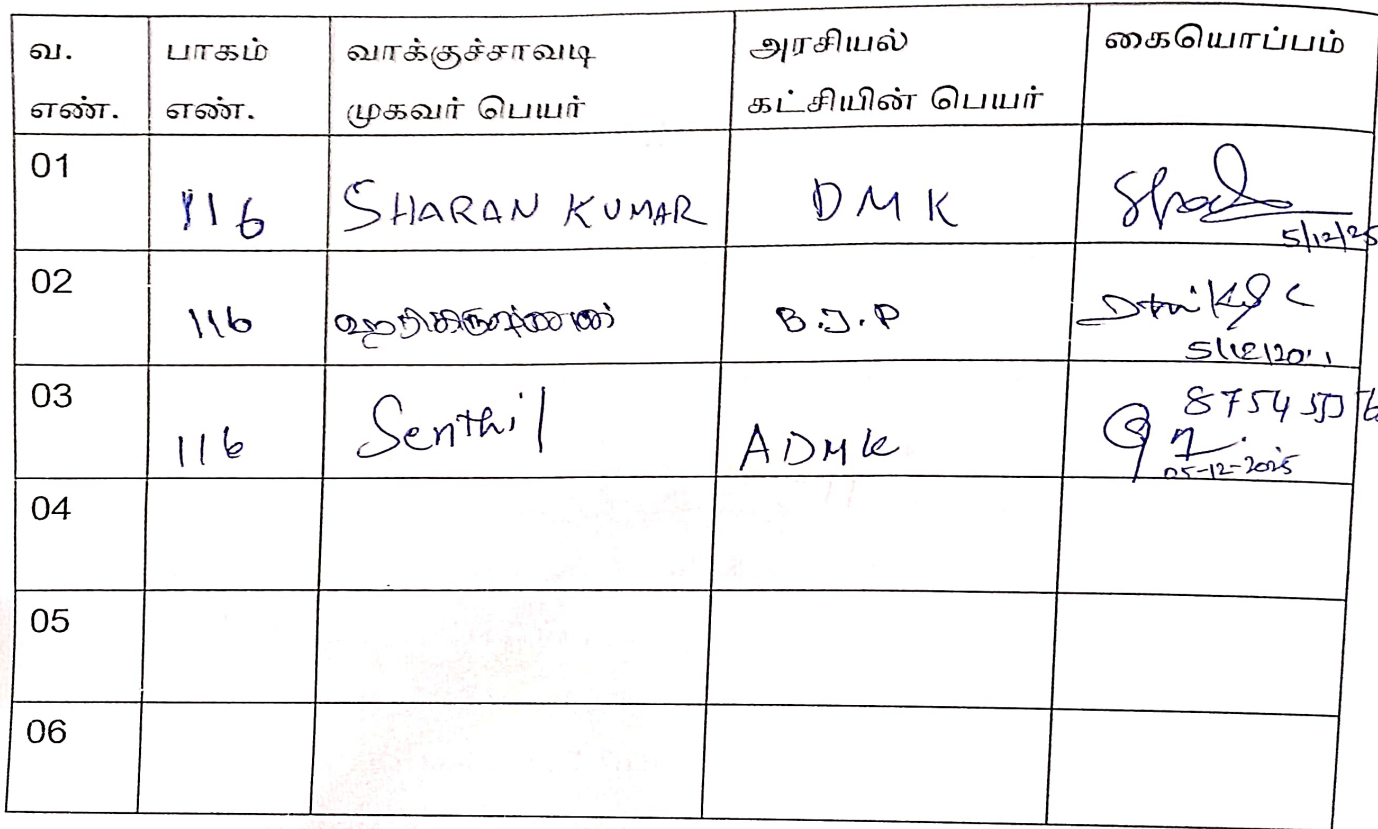 வ. எண். பாகம் எண். வாக்குச்சாவடி முகவர் பெயர் அரசியல் கட்சியின் பெயர் கையொப்பம்
01 116 SHARAN KUMAR DMK 5/12/25
02 116 ஹரிகிருஷ்ணன் B.J.P
03 116 Senthil ADMK 05-12-2025
04
05
06